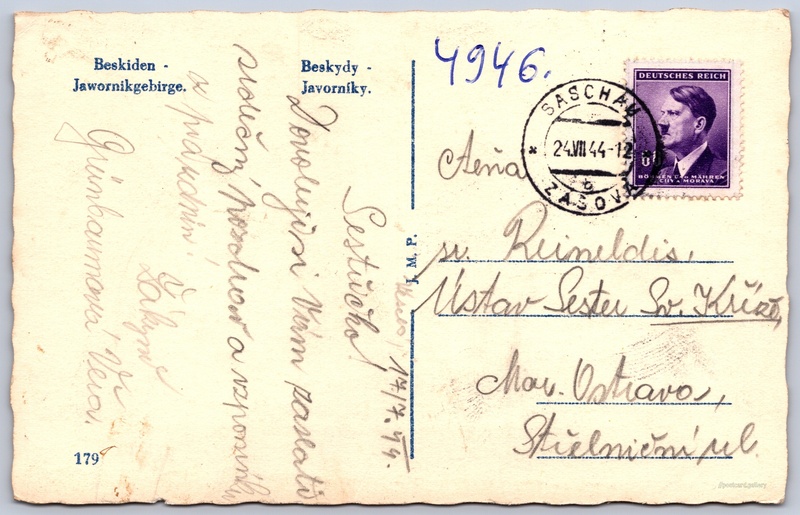 Beskiden -
Jawornikgebirge.
Beskydy -
Javorníky.
4946.
DEUTSCHES REICH
BÖHMEN UND MÄHREN
ČECHY A MORAVA
SASCHAU
24.VII 44-12
b
ZAŠOVÁ
17/7.44.
Sestřičko!
Dovoluji si Vám zaslati
srdečný pozdrav a vzpomínku
z prázdnin.
Žákyně
Grünbaumová Věra.
Ctěná
sr. Reineldis,
Ústav Sester Sv. Kříže,
Mor. Ostrava,
Střelniční ul.
179
I. M. P.